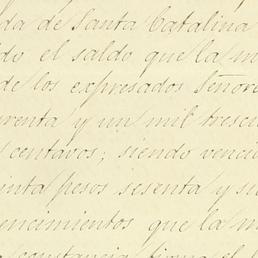 da de Santa Catalina
do el saldo que la m
de los expresados Señore
renta y un mil trescie
centavos; siendo vencid
inta pesos sesenta y si
encimientos que la m
constancia firma el